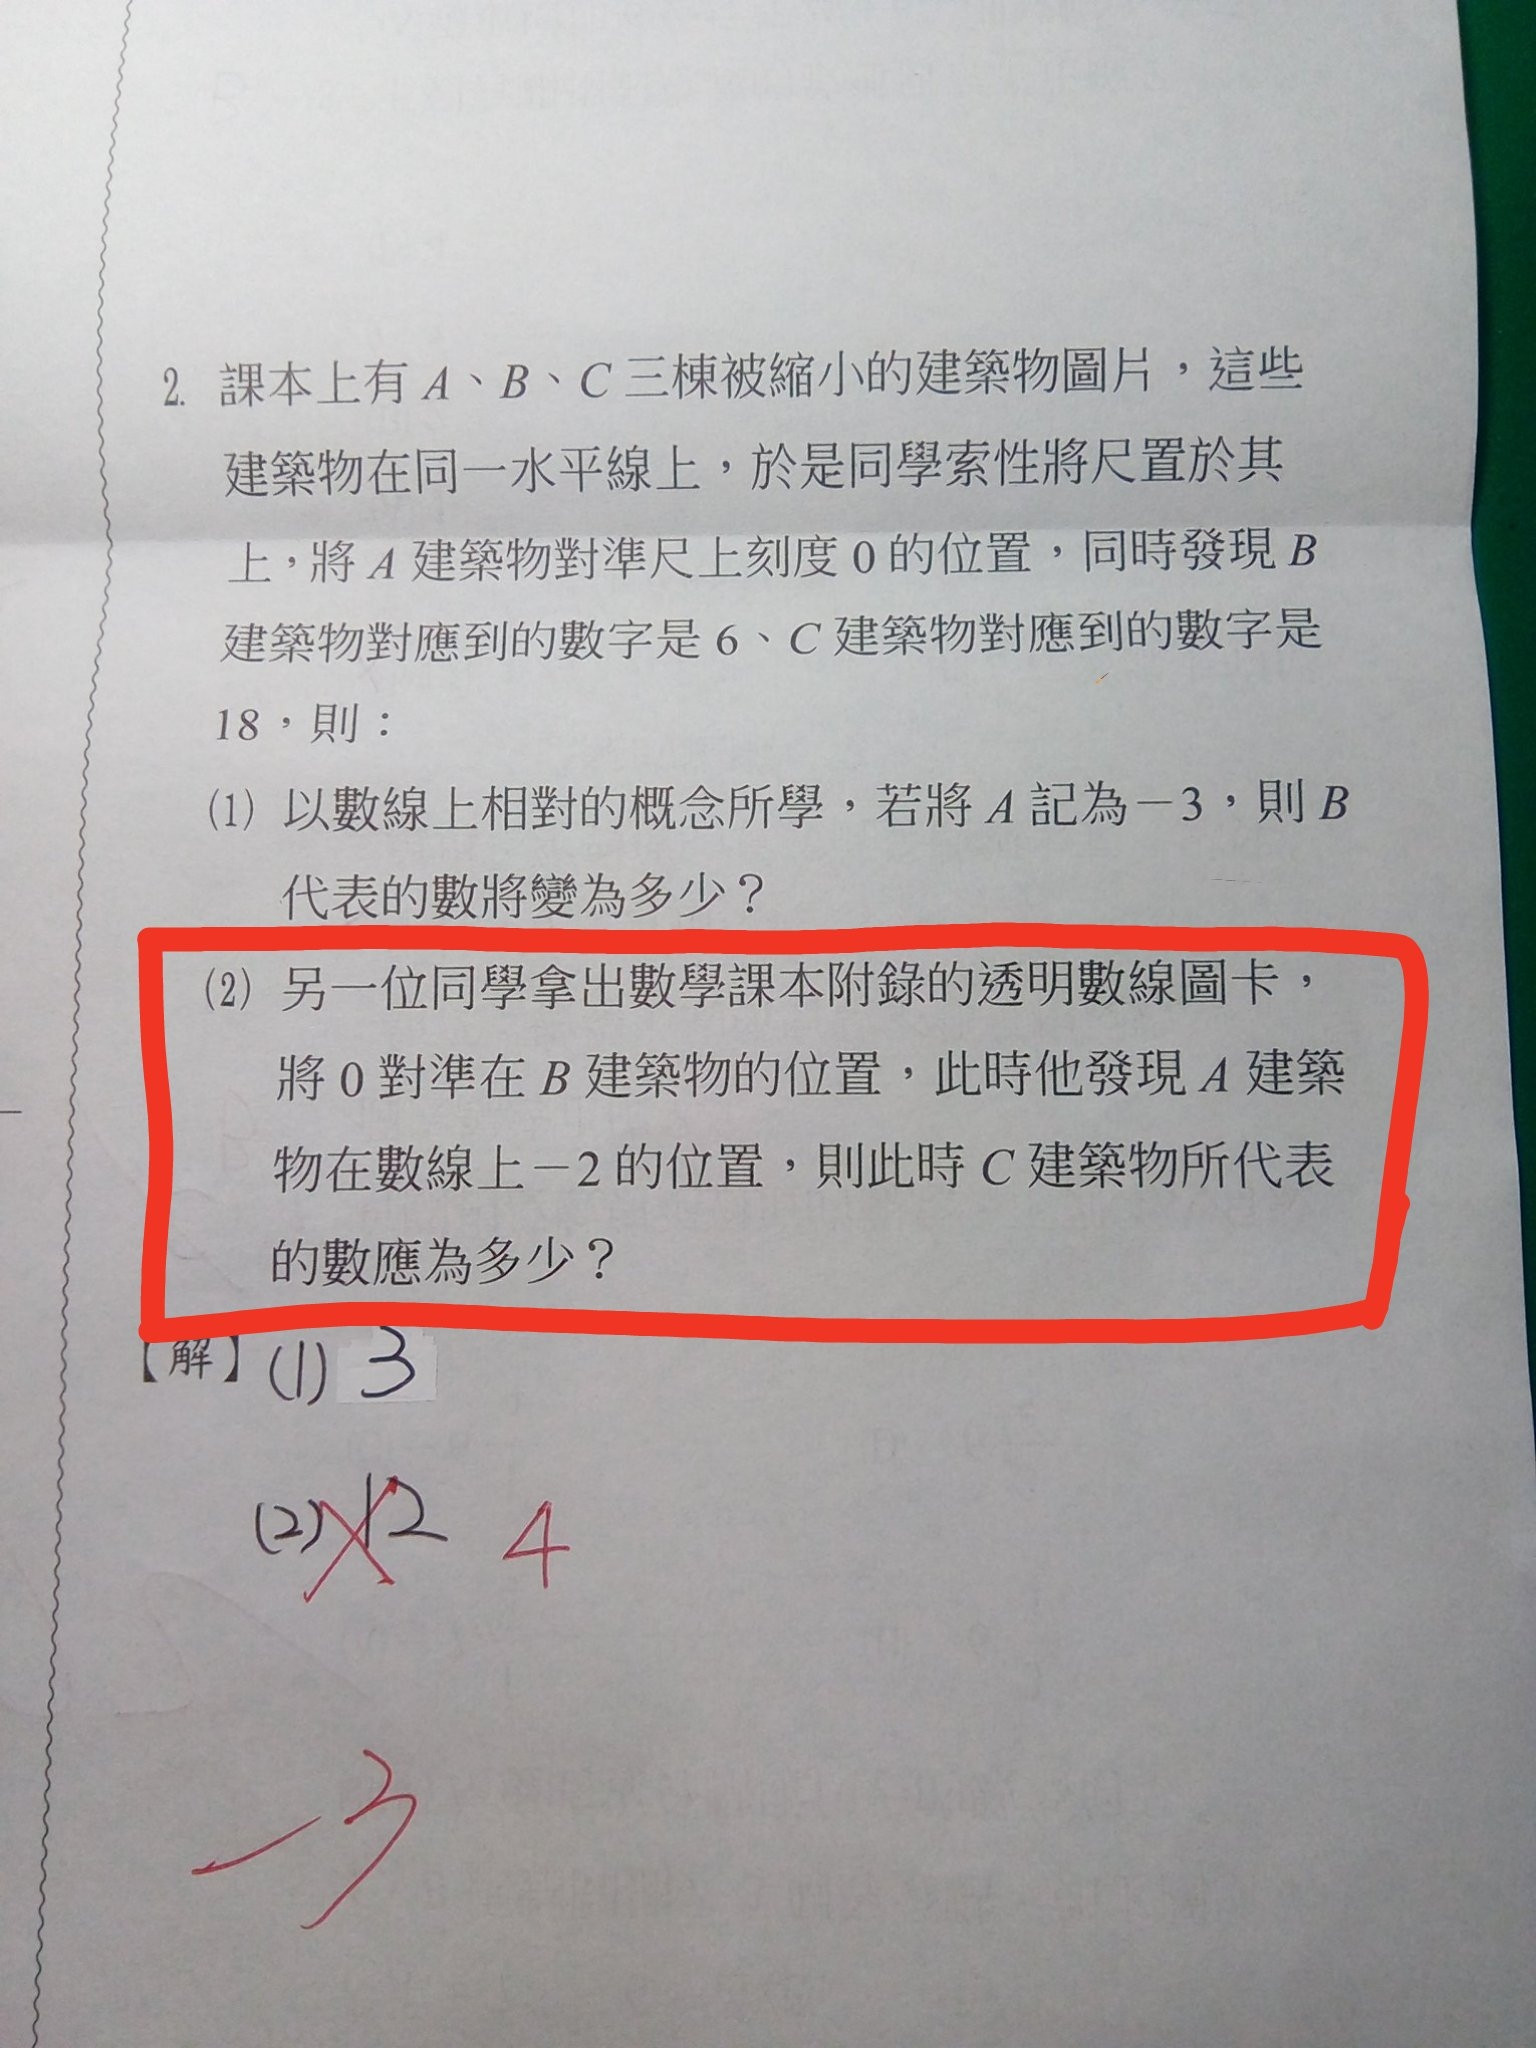 2. 課本上有 A、B、C 三棟被縮小的建築物圖片，這些
建築物在同一水平線上，於是同學索性將尺置於其
上，將 A 建築物對準尺上刻度 0 的位置，同時發現 B
建築物對應到的數字是 6、C 建築物對應到的數字是
18，則：
(1) 以數線上相對的概念所學，若將 A 記為－3，則 B
代表的數將變為多少？
(2) 另一位同學拿出數學課本附錄的透明數線圖卡，
將 0 對準在 B 建築物的位置，此時他發現 A 建築
物在數線上－2 的位置，則此時 C 建築物所代表
的數應為多少？
【解】(1) 3
(2) 12 4
－3